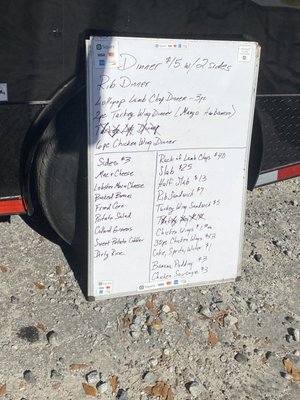 Square
Dinner $15 w/ 2 sides
Rib Dinner
Lollipop Lamb Chop Dinner - 3pc
2pc Turkey Wing Dinner (Mango Habanero)
6pc Chicken Wing Dinner
Sides $3
Mac n Cheese
Lobster Mac n Cheese
Baked Beans
Fried Corn
Potato Salad
Collard Greens
Sweet Potato Cobbler
Dirty Rice
Rack of Lamb Chops $40
Slab $25
Half Slab $13
Rib Sandwich $7
Turkey Wing Sandwich $5
Chicken Wings $1
30pc Chicken Wings
Coke, Sprite, Water
Banana Pudding $3
Chicken Sausage $3